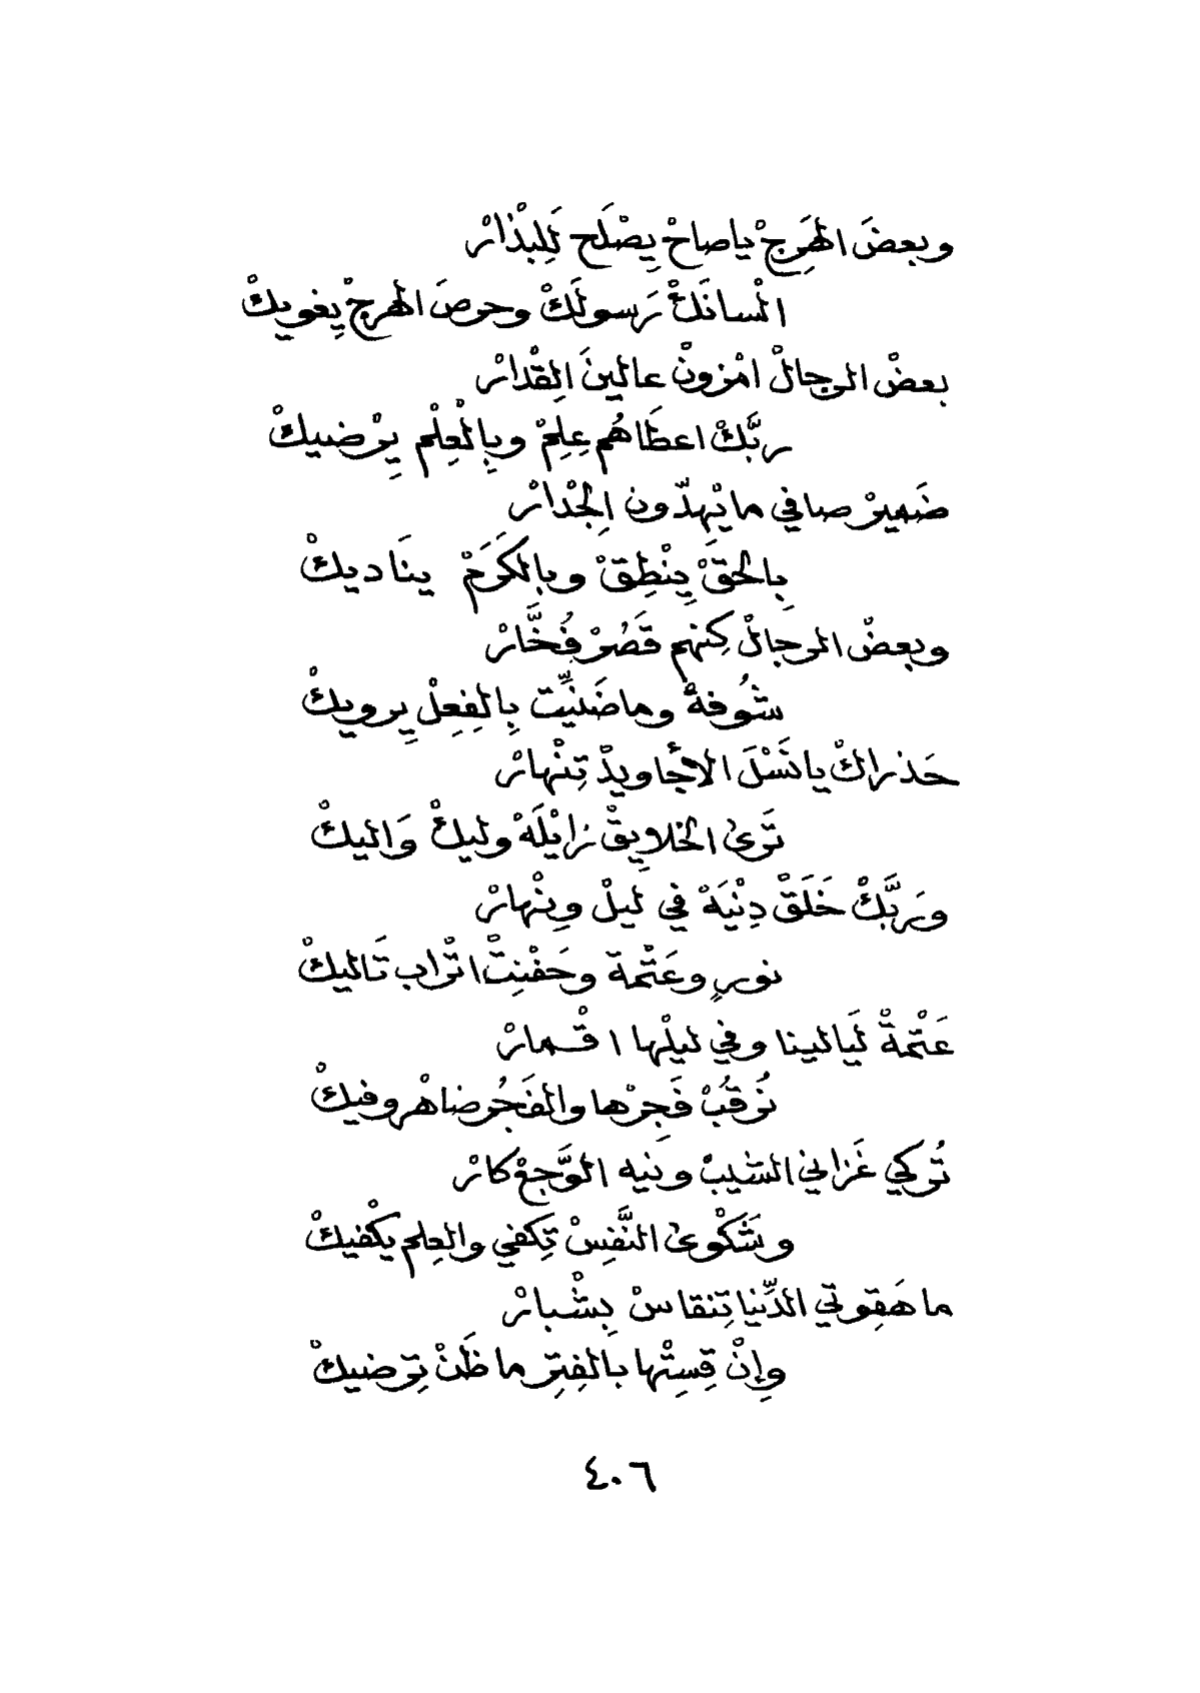 وبعضَ الهَرِجْ ياصاحْ يِصْلَح لَلِبْذارْ
الْسانَكْ رَسولَكْ وحرصَ الهرجْ يِغويكْ
بعضْ الرجالْ امْزونْ عالينَ الِقْدارْ
ربَّكْ اعطَاهُم عِلِمْ وبِالْعِلْم يِرْضيكْ
ضَميرْ صافي مايْهِدّون الِجْدارْ
بِالحَقَ يِنْطِقْ وبالكَرَمْ ينَاديكْ
وبعضْ الرجالْ كِنهم قَصُرْ فُخَّارْ
شُوفهْ وماضَنيِّت بِالفِعِلْ يِرويكْ
حَذراكْ يانَسْلَ الأجاويدْ تِنْهارْ
تَرىٰ الخلايِقْ زايْلَهْ وليكْ وَاليكْ
ورَبَّكْ خَلَقْ دِنْيَهْ في ليلْ ونْهارْ
نورٍ وعَتْمة وحَفْنِتْ اتْراب تَاليكْ
عَتْمةْ لَيالينا وفي ليلْها اقْمارْ
نُرقُبْ فَجِرْها والفَجُر ضاهْر وفيكْ
تُركي غَزاني الشيبْ ونيه الوَّجعْ كارْ
وشَكْوىٰ النَّفِسْ تِكفي والعِلم يكْفيكْ
ما هَقِوتي الدِّنيا تِنقاسْ بِشْبارْ
وِإنْ قِسِتْها بالفِتِر ما ظَنْ تِرضيكْ
٤٠٦